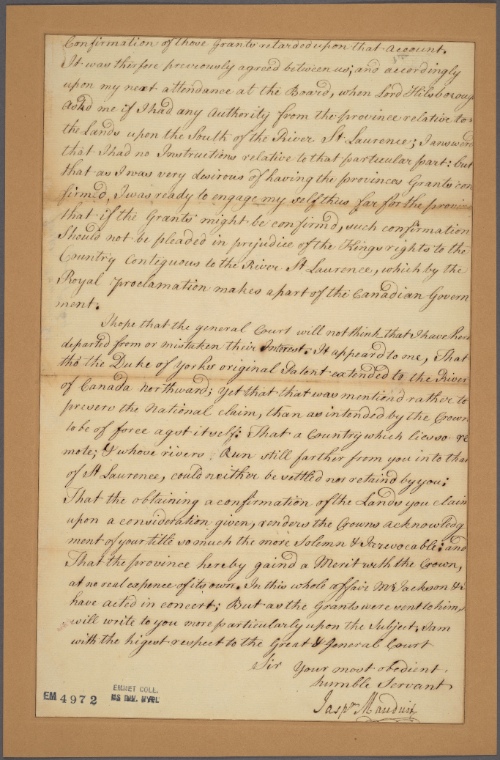 Confirmation of those Grants retarded upon that Account.
It was therfore previously agreed between us; and accordingly
upon my next attendance at the Board, when Lord Hilsboroug
Asked me if I had any Authority from the province relative to
the Lands upon the South of the River St Laurence; I answerd
that I had no Instructions relative to that particular part: but
that as I was very desirous of having the provinces Grants con
firmed, I was ready to engage my self thus far for the provinc
that if the Grants might be confirmd, such confirmation
Should not be pleaded in prejudice of the Kings rights to the
Country Contiguous to the River St Laurence, which by the
Royal proclamation makes a part of the Canadian Govern
ment.
I hope that the general Court will not think that I have here
departed from or mistaken their Interest. It appeard to me, That
tho the Duke of Yorks original Patent extended to the River
of Canada northward; Yet that that was mentiond rather to
preserve the National claim, than as intended by the Crown
to be of force agst itself: That a Country which lies so re
mote; & whose rivers Run still farther from you into that
of St Laurence, could neither be settled nor retaind by you:
That the obtaining a confirmation of the Lands you claim
upon a consideration given, renders the Crowns acknowledg
ment of your title so much the more Solemn & Irrevocable: and
That the province hereby gaind a Merit with the Crown,
at no real expence of its own. In this whole affair Mr Jackson & I
have acted in concert; But as the Grants were sent to him,
will write to you more particularly upon the Subject. I am
with the higest respect to the Great & General Court
Sir Your most obedient
humble Servant
Jaspr Mauduit
EM 4972
EMMET COLL.